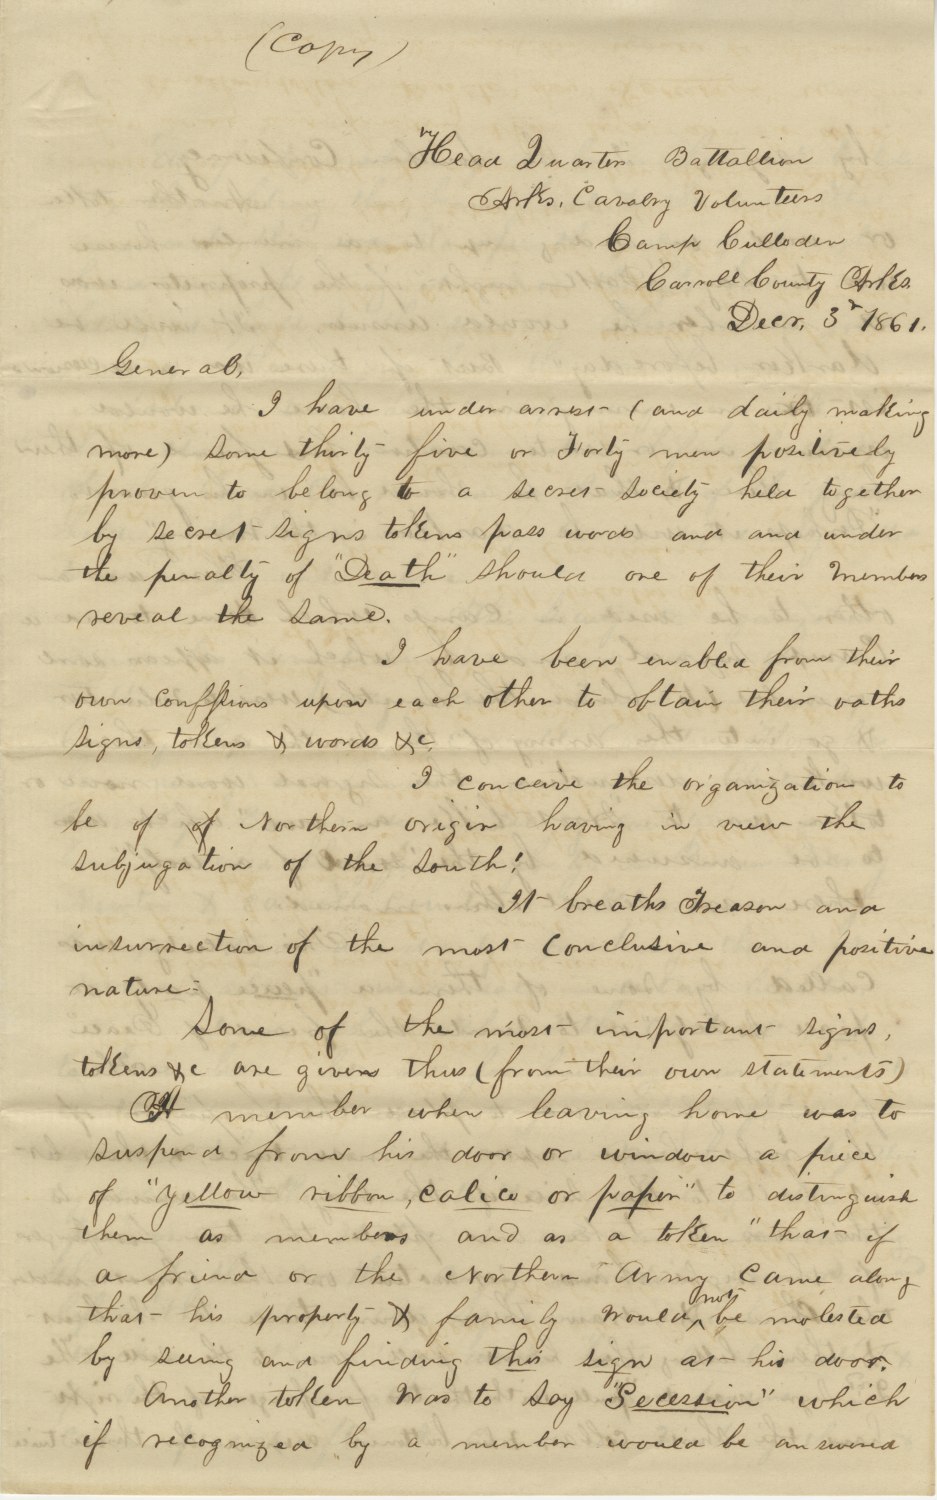 (Copy)
Head Quarters Battallion
Arks. Cavalry Volunteers
Camp Culloden
Carroll County Arks.
Decr. 3d 1861.
General,
I have under arrest (and daily making
more) some thirty five or Forty men positively
proven to belong to a secret society held together
by secret signs tokens pass words and and under
the penalty of "Death" should one of their members
reveal the same.
I have been enabled from their
own conffsions upon each other to obtain their oaths
signs, tokens & words &c.
I conceive the organization to
be of of Northern origin having in view the
subjugation of the south!
It breaths Treason and
insurrection of the most conclusive and positive
nature-
Some of the most important signs,
tokens &c are given thus (from their own statements)
A member when leaving home was to
suspend from his door or window a piece
of "yellow ribbon, calico or paper" to distinguish
them as members and as a token "that if
a friend or the Northern Army came along
that his property & family would not be molested
by seeing and finding this sign at his door.
Another token was to say "Secession" which
if recognized by a member would be answered